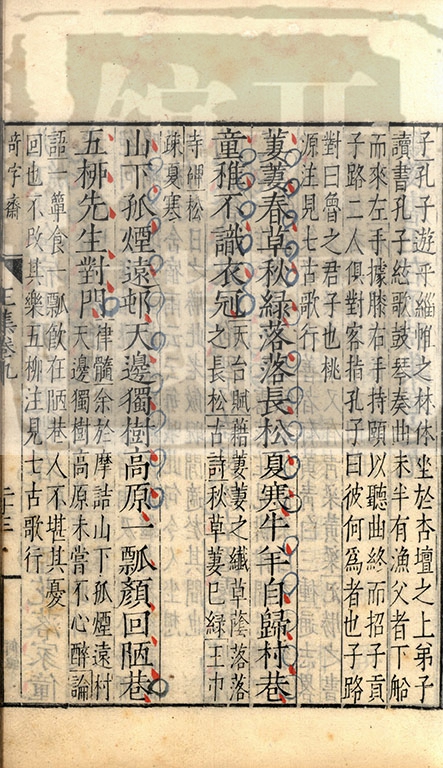 子孔子遊乎緇帷之林休坐於杏壇之上弟子
讀書孔子絃歌鼓琴奏曲未半有漁父者下船
而來左手據膝右手持頤以聽曲終而招子貢
子路二人俱對客指孔子曰彼何為者也子路
對曰魯之君子也桃
源注見七古歌行
萋萋春草秋綠落落長松夏寒牛羊自歸村巷
童稚不識衣冠
天台賦藉萋萋之纖草蔭落落
之長松古詩秋草萋已綠王巾
寺碑松
疎夏寒
山下孤煙遠邨天邊獨樹高原一瓢顏回陋巷
五柳先生對門
律髓余於摩詰山下孤煙遠村
天邊獨樹高原未嘗不心醉論
語一簞食一瓢飲在陋巷人不堪其憂
回也不改其樂五柳注見七古歌行
奇字齋
王集卷九